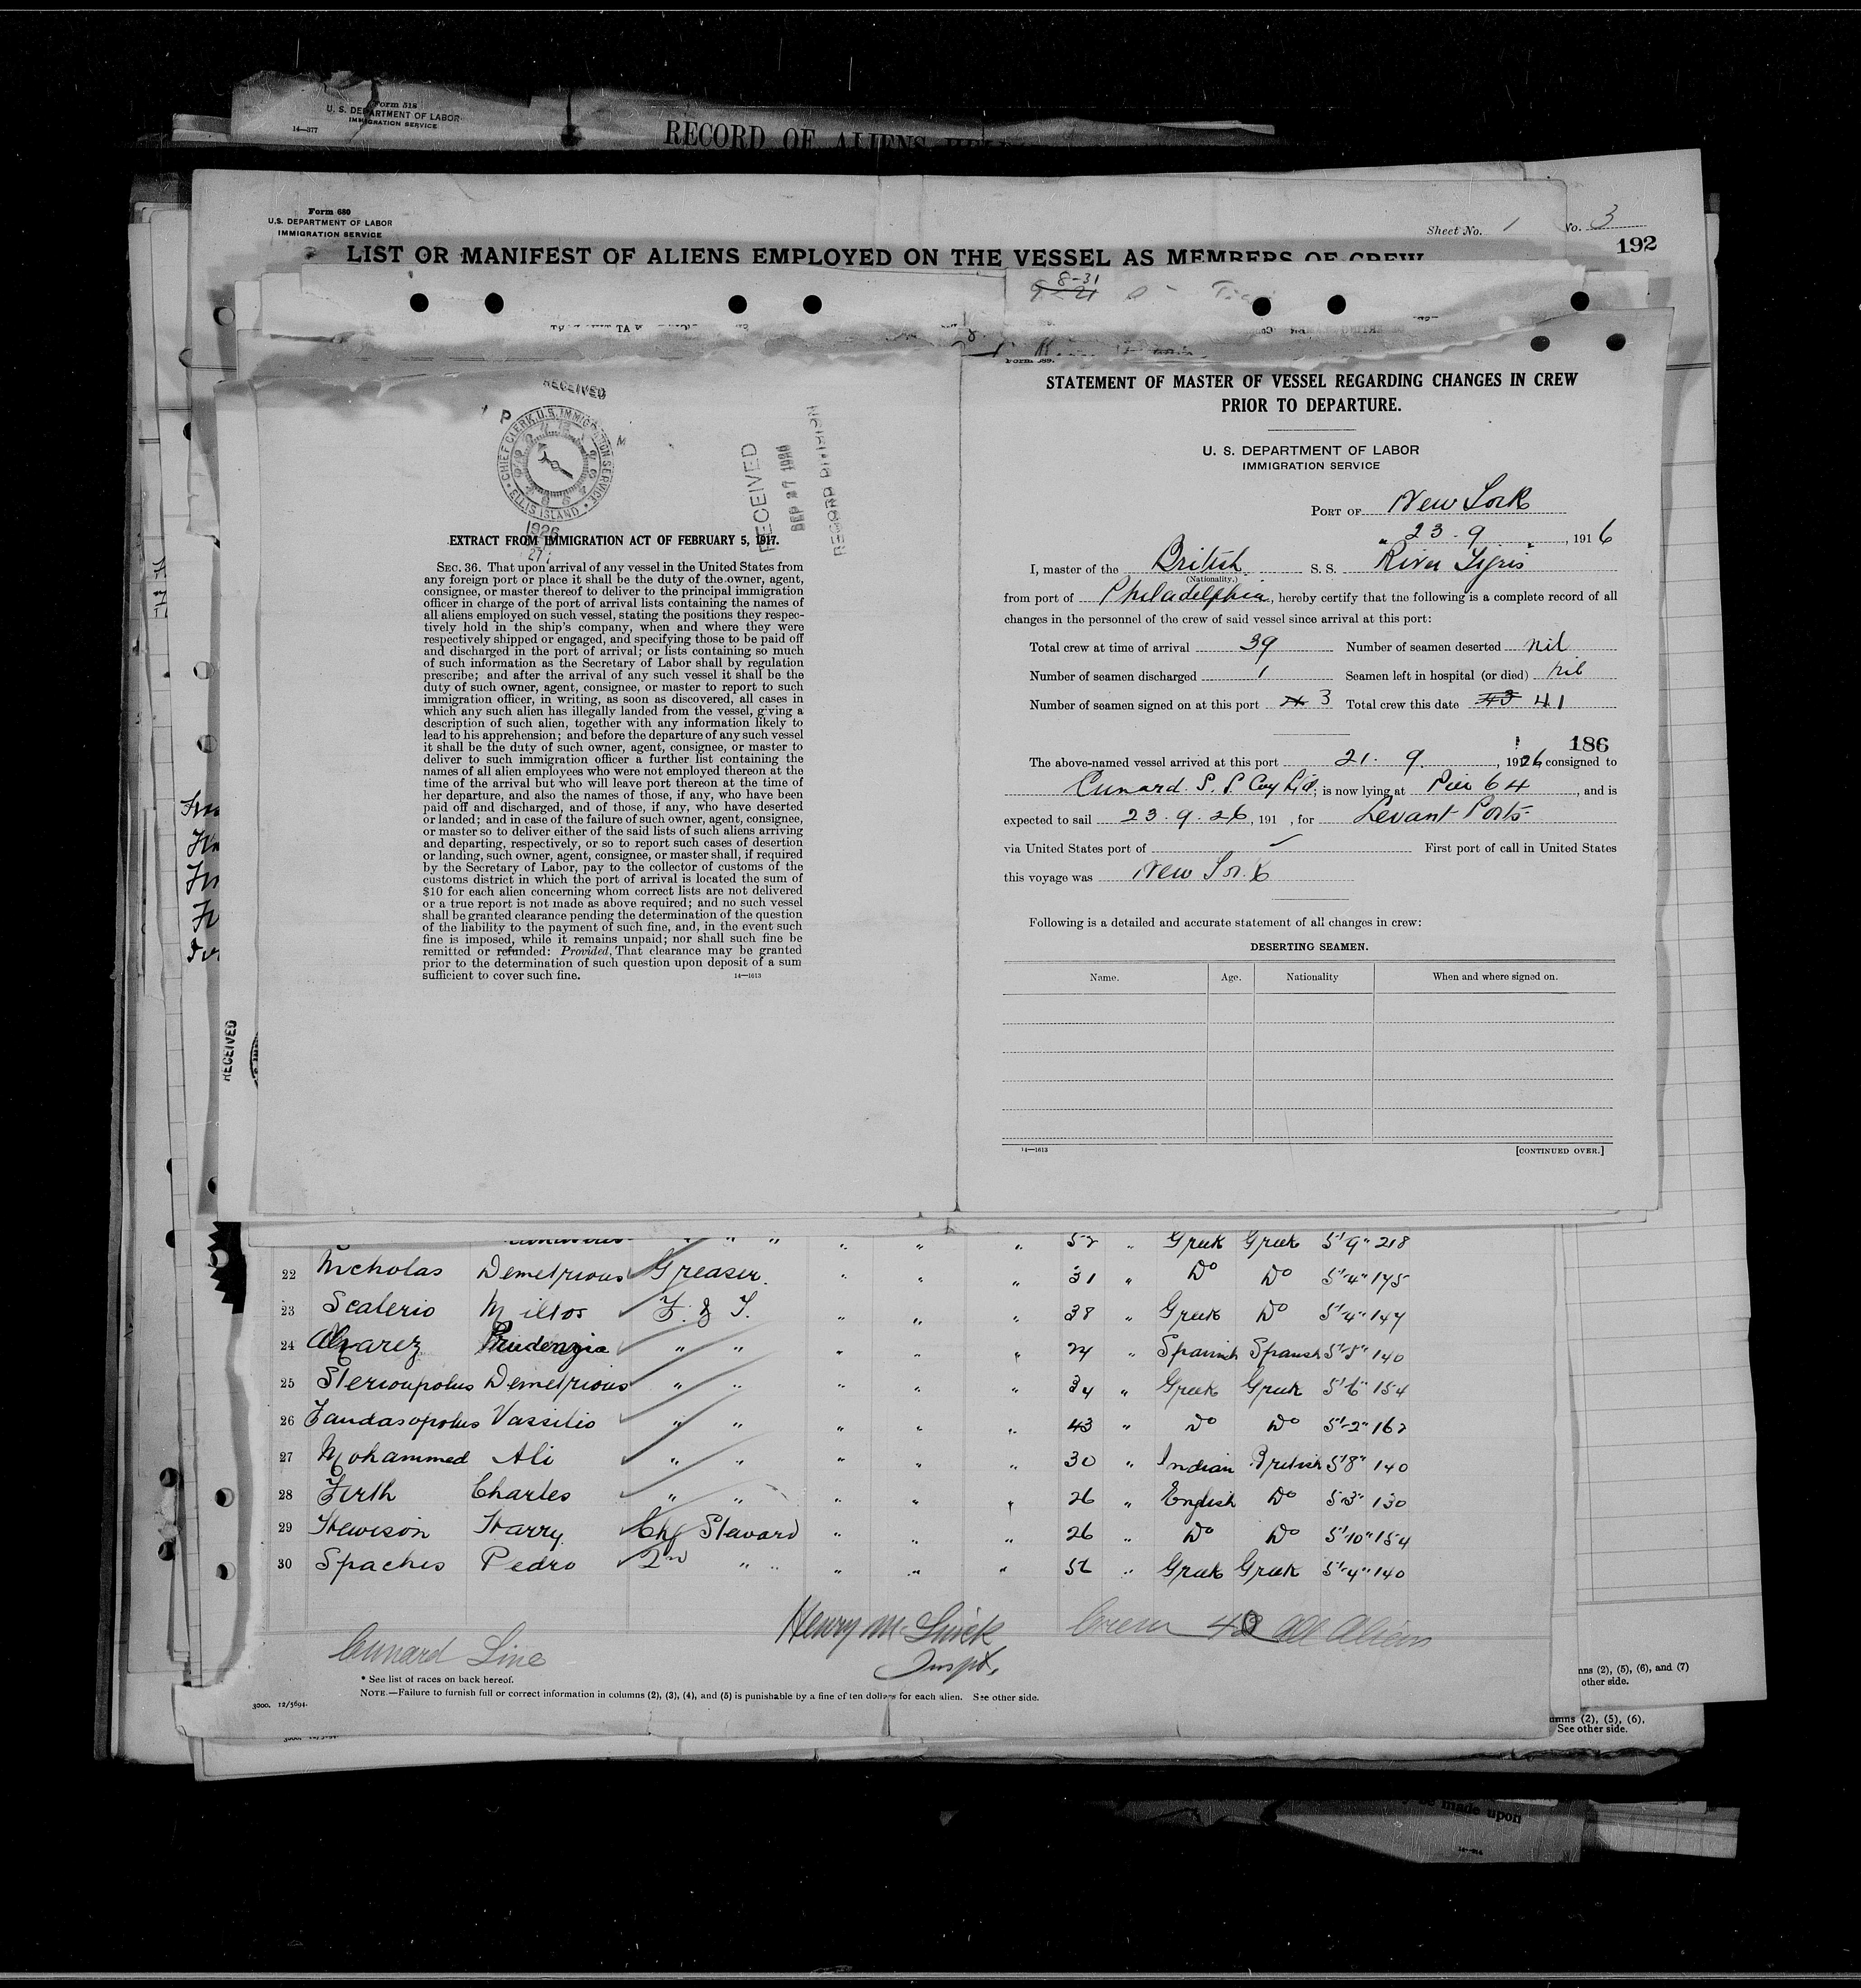 Form 518
U. S. DEPARTMENT OF LABOR
IMMIGRATION SERVICE
14—377
RECORD OF ALIENS
Form 680
U.S. DEPARTMENT OF LABOR
IMMIGRATION SERVICE
Sheet No. 1
No. 3
192
LIST OR MANIFEST OF ALIENS EMPLOYED ON THE VESSEL AS MEMBERS OF CREW
8-31
RECEIVED
CHIEF CLERK, U.S. IMMIGRATION SERVICE
ELLIS ISLAND
1926
27
RECEIVED
SEP 27 1926
RECORD DIVISION
EXTRACT FROM IMMIGRATION ACT OF FEBRUARY 5, 1917.
SEC. 36. That upon arrival of any vessel in the United States from
any foreign port or place it shall be the duty of the owner, agent,
consignee, or master thereof to deliver to the principal immigration
officer in charge of the port of arrival lists containing the names of
all aliens employed on such vessel, stating the positions they respec-
tively hold in the ship's company, when and where they were
respectively shipped or engaged, and specifying those to be paid off
and discharged in the port of arrival; or lists containing so much
of such information as the Secretary of Labor shall by regulation
prescribe; and after the arrival of any such vessel it shall be the
duty of such owner, agent, consignee, or master to report to such
immigration officer, in writing, as soon as discovered, all cases in
which any such alien has illegally landed from the vessel, giving a
description of such alien, together with any information likely to
lead to his apprehension; and before the departure of any such vessel
it shall be the duty of such owner, agent, consignee, or master to
deliver to such immigration officer a further list containing the
names of all alien employees who were not employed thereon at the
time of the arrival but who will leave port thereon at the time of
her departure, and also the names of those, if any, who have been
paid off and discharged, and of those, if any, who have deserted
or landed; and in case of the failure of such owner, agent, consignee,
or master so to deliver either of the said lists of such aliens arriving
and departing, respectively, or so to report such cases of desertion
or landing, such owner, agent, consignee, or master shall, if required
by the Secretary of Labor, pay to the collector of customs of the
customs district in which the port of arrival is located the sum of
$10 for each alien concerning whom correct lists are not delivered
or a true report is not made as above required; and no such vessel
shall be granted clearance pending the determination of the question
of the liability to the payment of such fine, and, in the event such
fine is imposed, while it remains unpaid; nor shall such fine be
remitted or refunded: Provided, That clearance may be granted
prior to the determination of such question upon deposit of a sum
sufficient to cover such fine. 14—1613
Form 689.
STATEMENT OF MASTER OF VESSEL REGARDING CHANGES IN CREW
PRIOR TO DEPARTURE.
U. S. DEPARTMENT OF LABOR
IMMIGRATION SERVICE
PORT OF New York
23. 9, 1916
I, master of the British S. S. "River Tigris"
(Nationality.)
from port of Philadelphia, hereby certify that the following is a complete record of all
changes in the personnel of the crew of said vessel since arrival at this port:
Total crew at time of arrival 39 Number of seamen deserted nil
Number of seamen discharged 1 Seamen left in hospital (or died) nil
Number of seamen signed on at this port 3 Total crew this date 43 41
186
The above-named vessel arrived at this port 21. 9., 1926 consigned to
Cunard S. S. Coy Ltd; is now lying at Pier 64, and is
expected to sail 23. 9. 26, 191 , for Levant Ports
via United States port of First port of call in United States
this voyage was New York
Following is a detailed and accurate statement of all changes in crew:
DESERTING SEAMEN.
Name. Age. Nationality When and where signed on.
14—1613 [CONTINUED OVER.]
RECEIVED
52 " Greek Greek 5'9" 218
22 Nicholas Demetrious Greaser " " " 31 " Do Do 5'4" 175
23 Scalerio Miltos F. & T. " " " 38 " Greek Do 5'4" 147
24 Alvarez Prudenzia " " " " " 24 " Spanish Spanish 5'5" 140
25 Sterioupolus Demetrious " " " " " 34 " Greek Greek 5'6" 154
26 Vassilio " " " " " 43 " Do Do 5'2" 162
27 Mohammed Ali " " " " " 30 " Indian British 5'8" 140
28 Firth Charles " " " " " 26 " English Do 5'3" 130
29 Hewison Harry Chf Steward " " " 26 " Do Do 5'10" 154
30 Spachis Pedro 2nd " " " " " 52 " Greek Greek 5'4" 140
Cunard Line
Henry
Inspt.
Crew 40 all Aliens
* See list of races on back hereof.
NOTE.—Failure to furnish full or correct information in columns (2), (3), (4), and (5) is punishable by a fine of ten dollars for each alien. See other side.
3000. 12/5694.
mns (2), (5), (6), and (7)
other side.
umns (2), (5), (6),
See other side.
be made upon